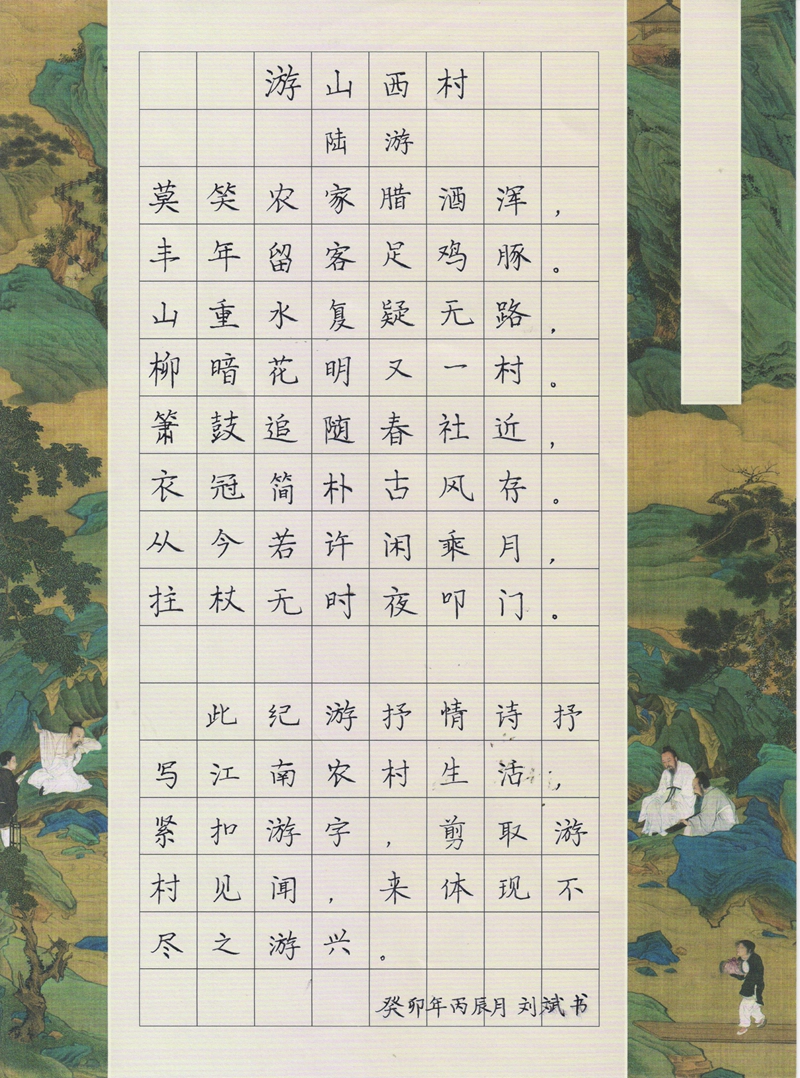 游山西村
陆游
莫笑农家腊酒浑，
丰年留客足鸡豚。
山重水复疑无路，
柳暗花明又一村。
箫鼓追随春社近，
衣冠简朴古风存。
从今若许闲乘月，
拄杖无时夜叩门。
此纪游抒情诗抒
写江南农村生活，
紧扣游字，剪取游
村见闻，来体现不
尽之游兴。
癸卯年丙辰月 刘斌书